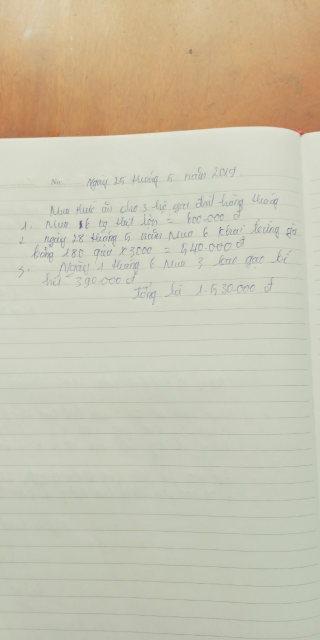 No:
Ngày 25 tháng 5 năm 2019
Mua thức ăn cho 3 hộ gia đình hàng tháng
1. Mua thịt lợn = 600.000 đ
2. Ngày 28 tháng 5 năm Mua 6 khai trứng gà
bằng 180 quả x 3000 = 540.000 đ
3. Ngày 1 tháng 6 Mua 3 bao gạo
hết 390.000 đ
Tổng là 1.530.000 đ